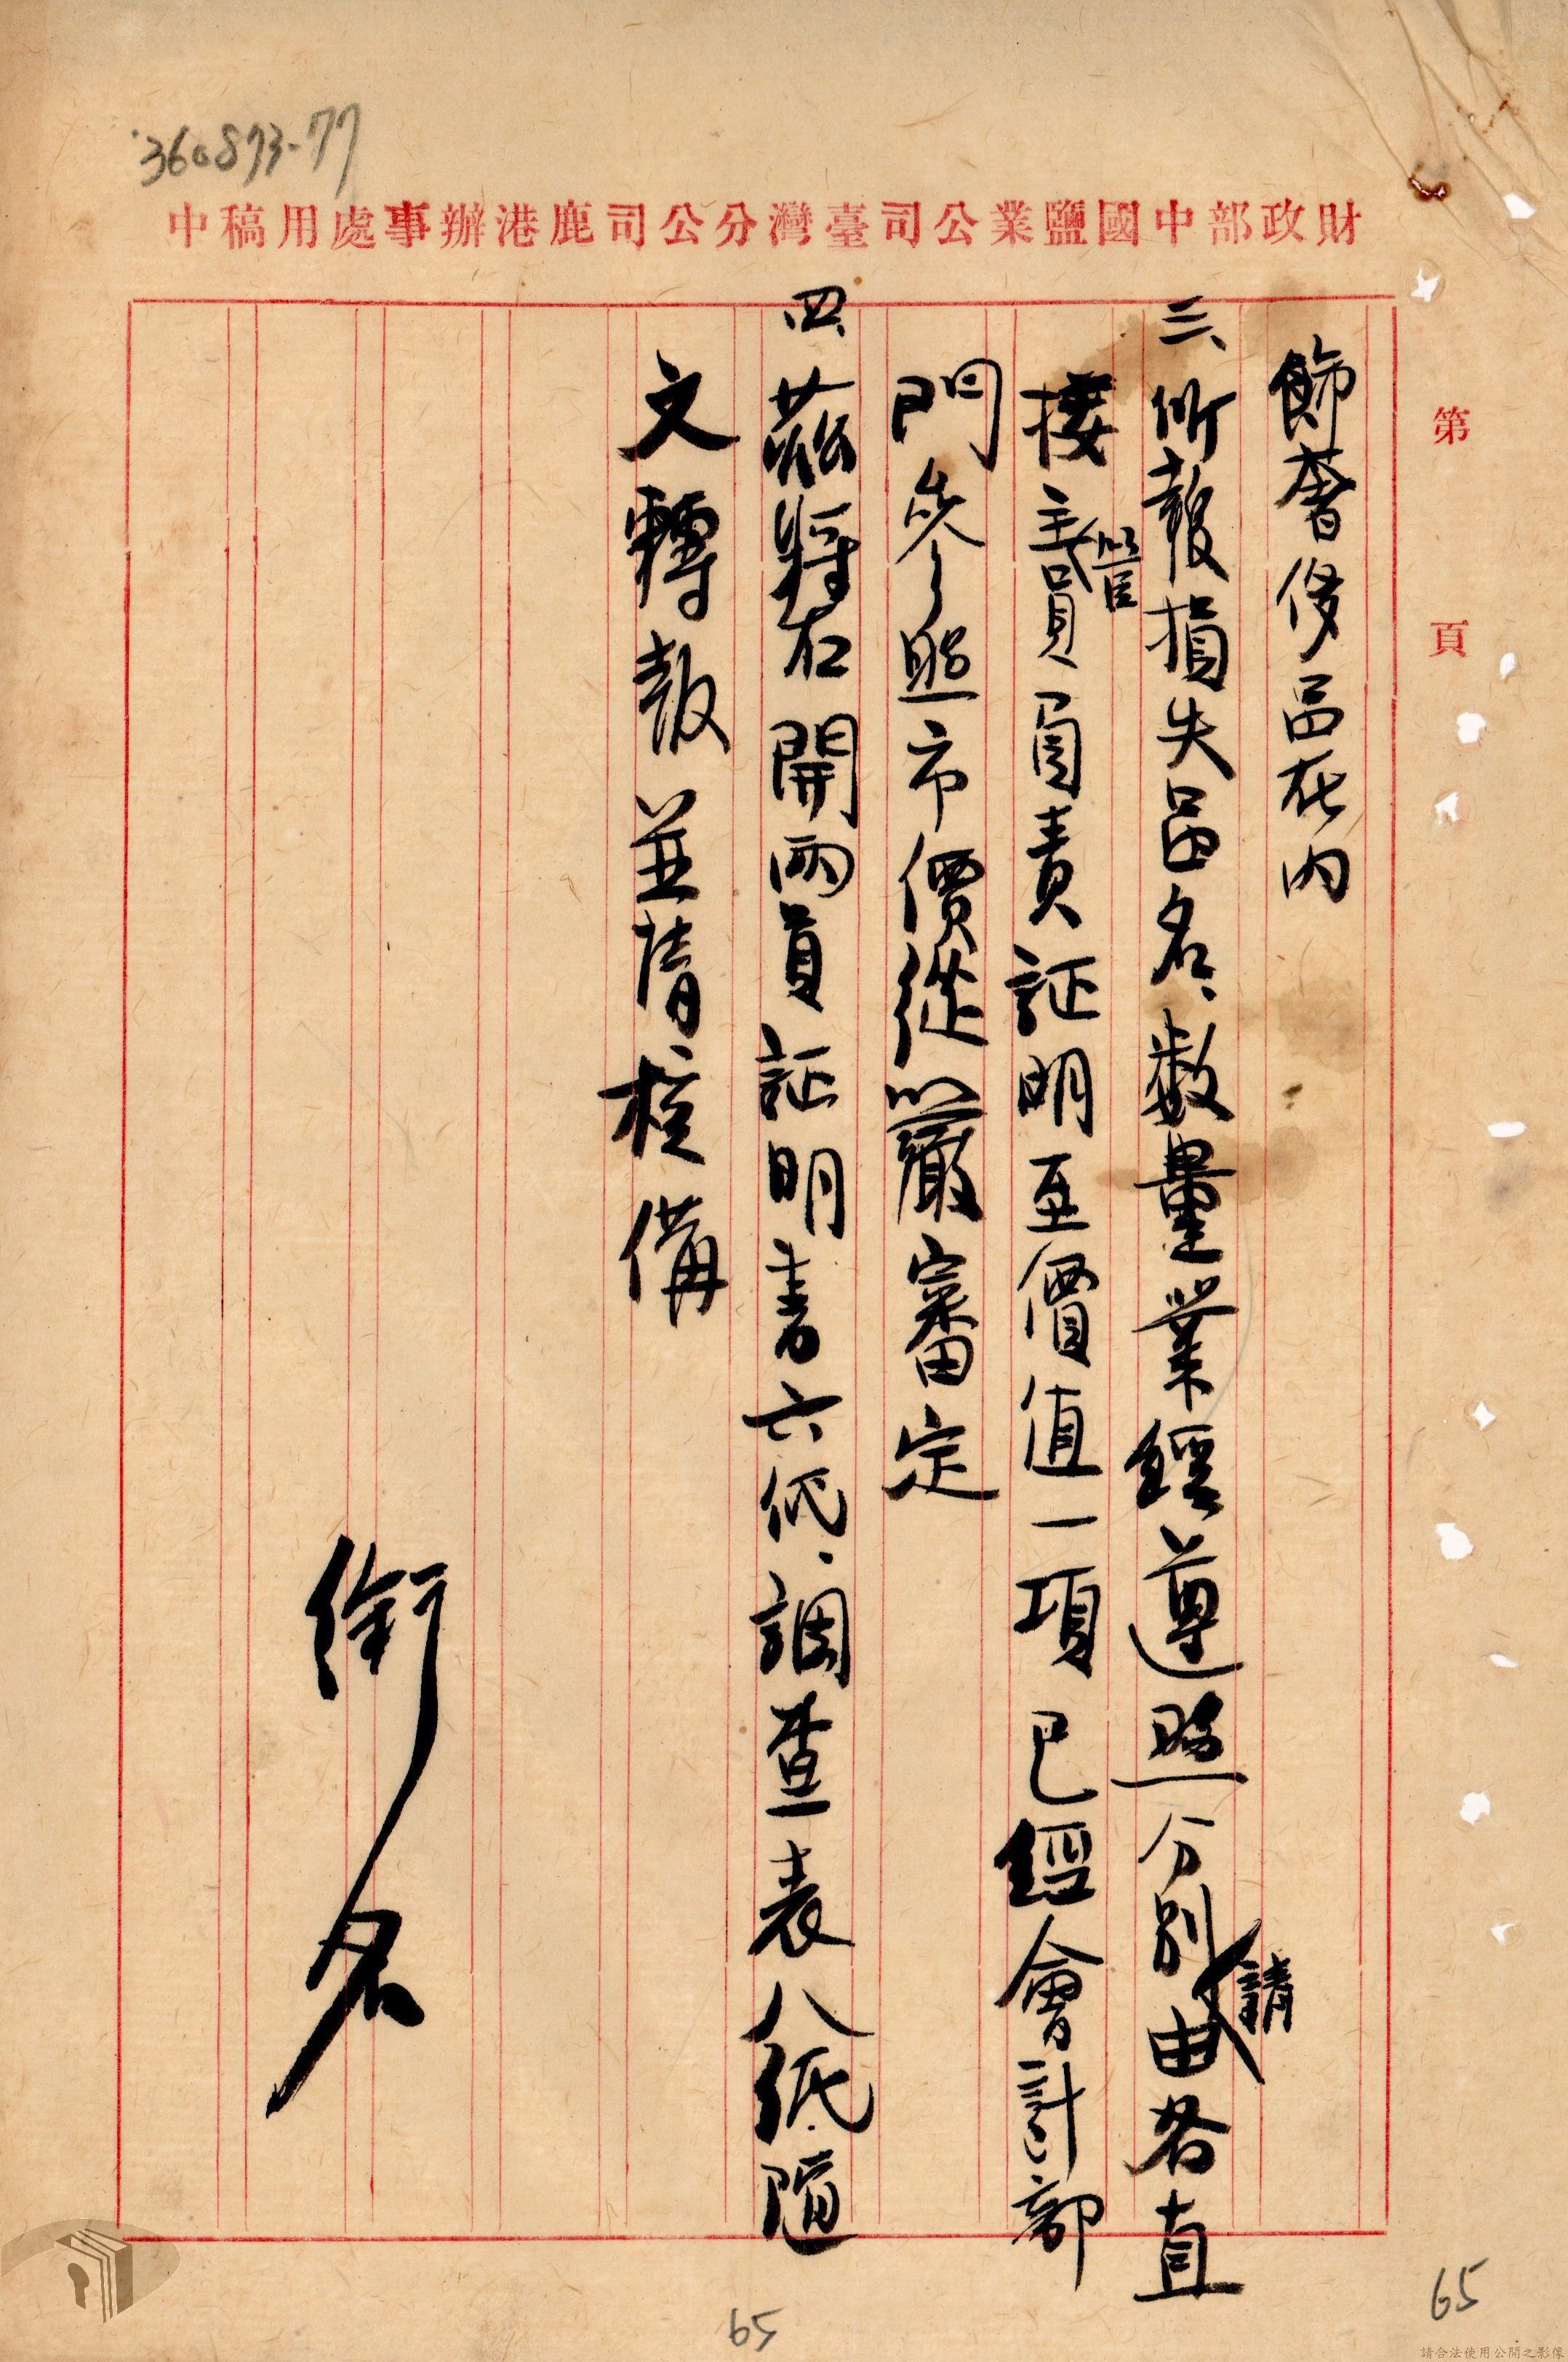 360893-77
財政部中國鹽業公司臺灣分公司鹿港辦事處用稿中
第 頁
飾奢侈品在內
三、所報損失品名、数量業經遵照分別請由各直
接主管員負責証明至價值一項已經會計部
門參照市價從嚴審定
四、茲將右開兩員証明書六紙、調查表八紙隨
文轉報並請核備
銜名
65
65
請合法使用公開之影像